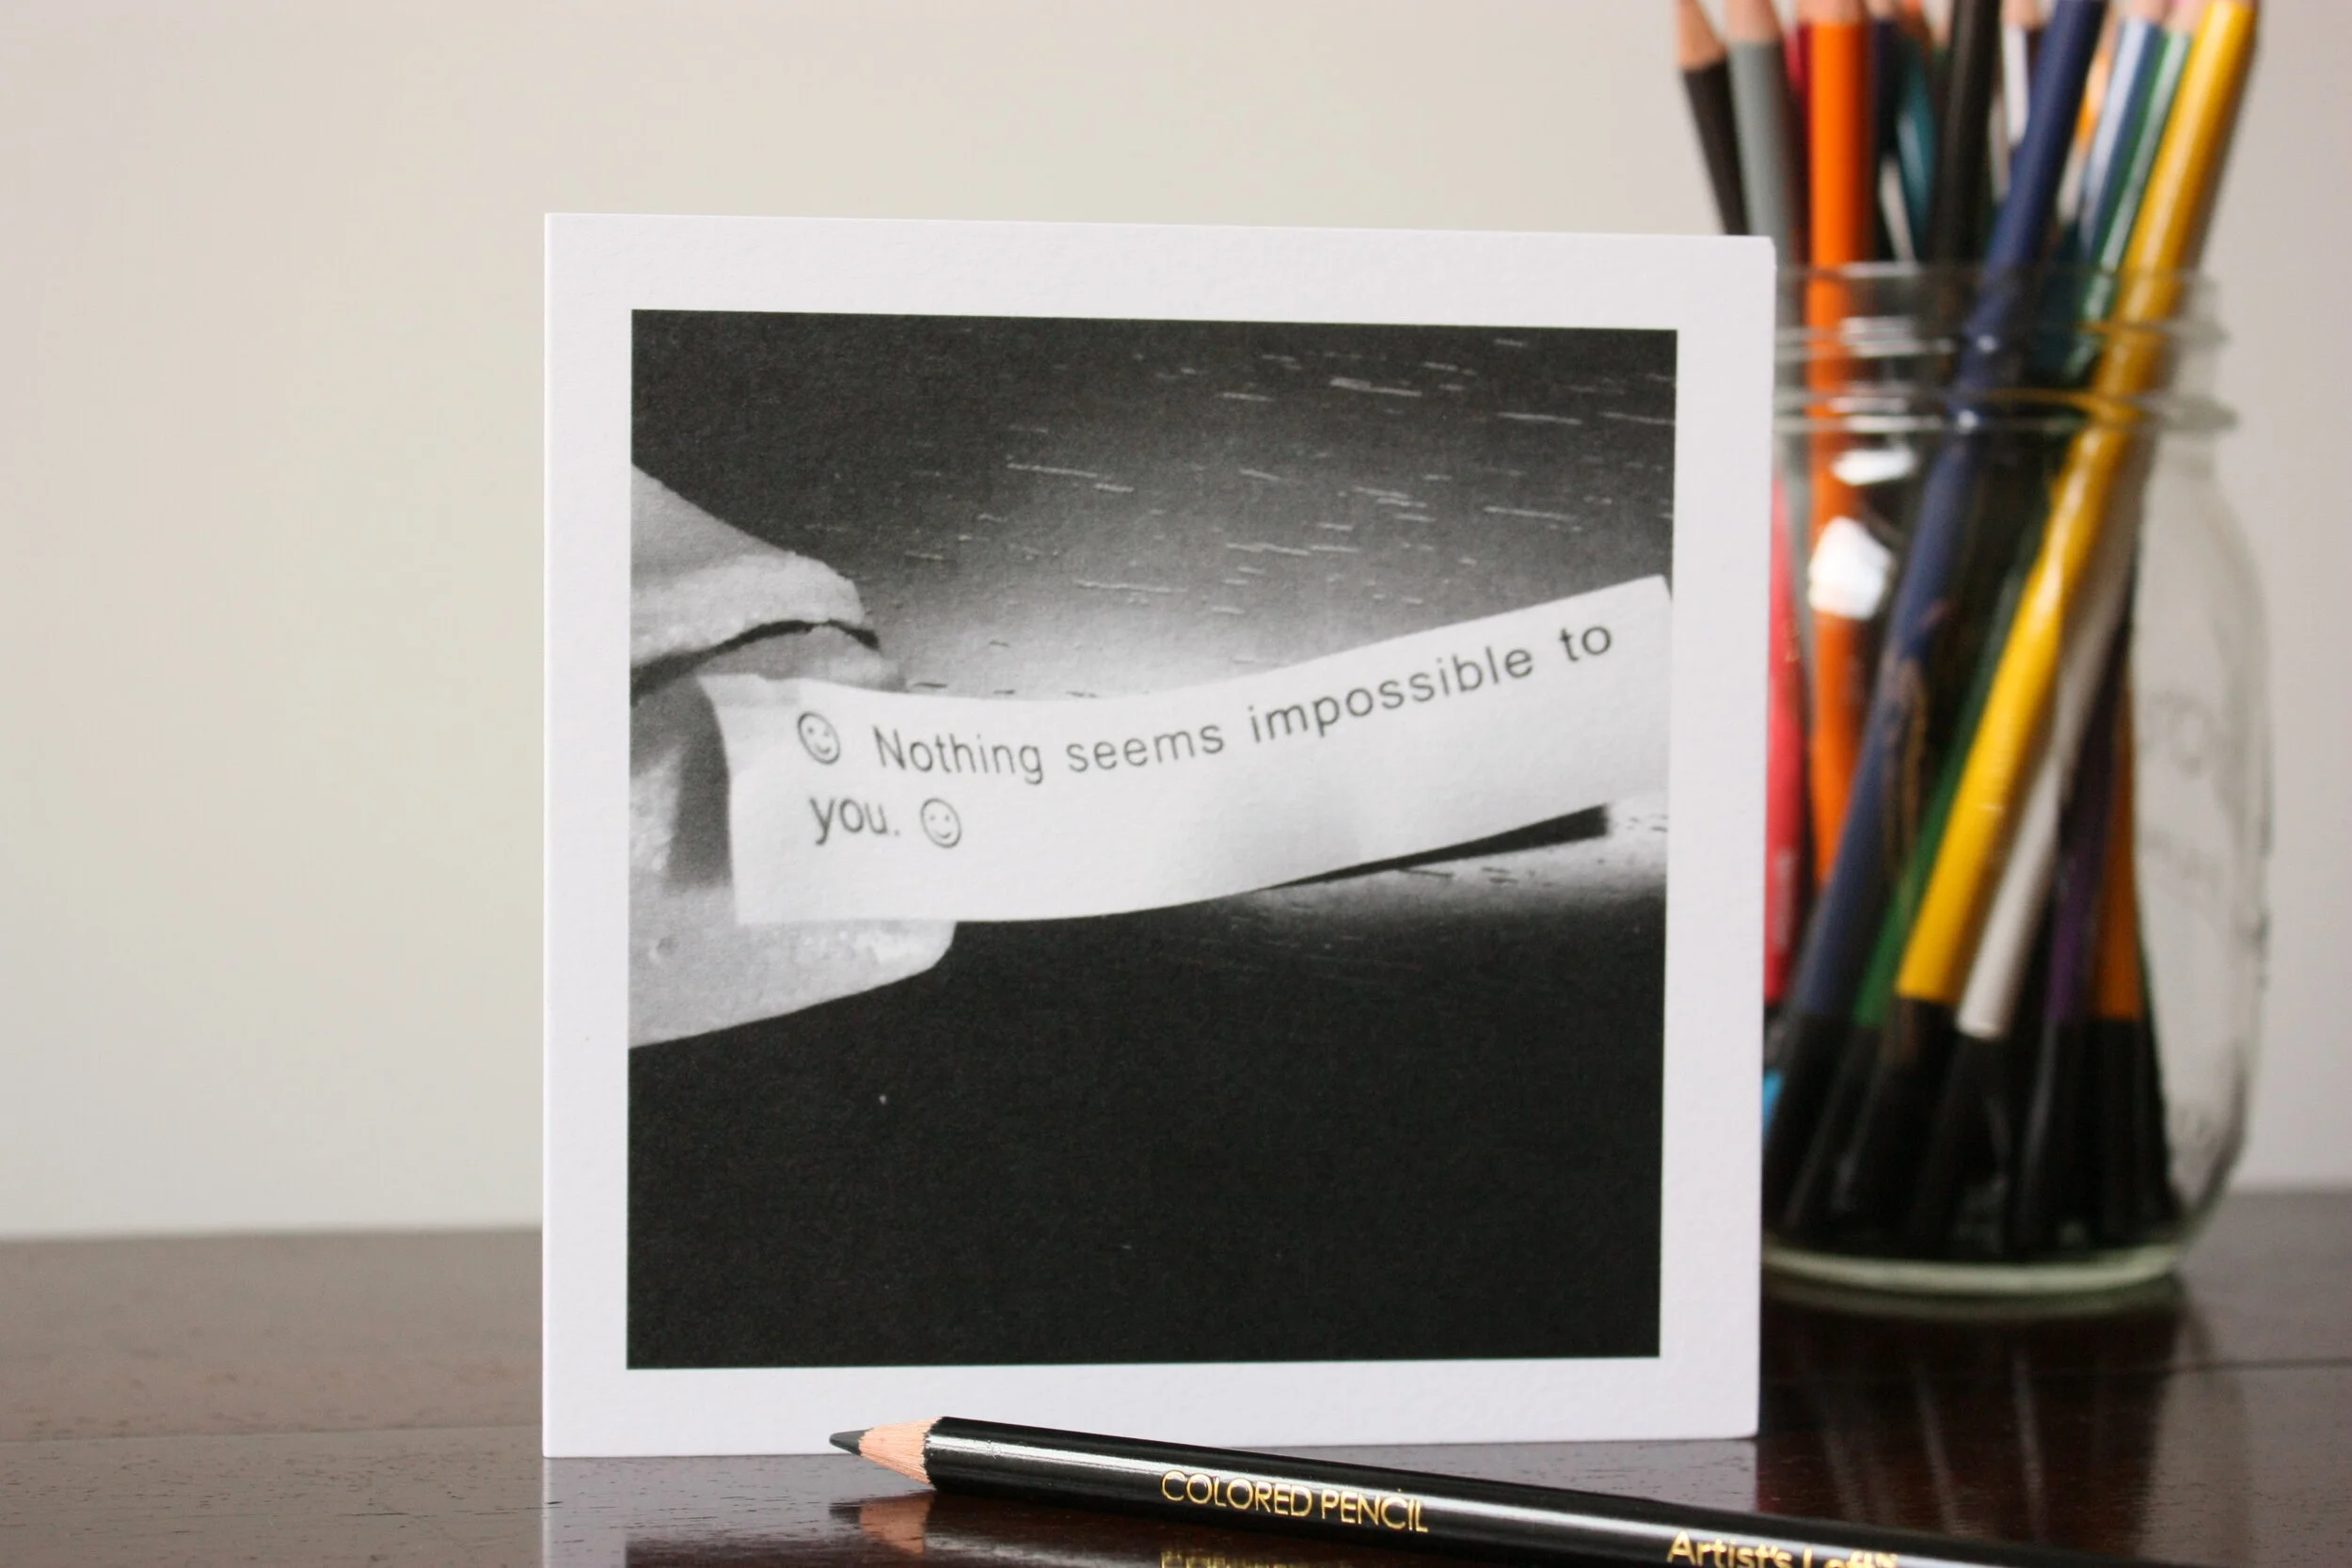 ☺ Nothing seems impossible to
you. ☺
COLORED PENCIL
Artist's Loft™